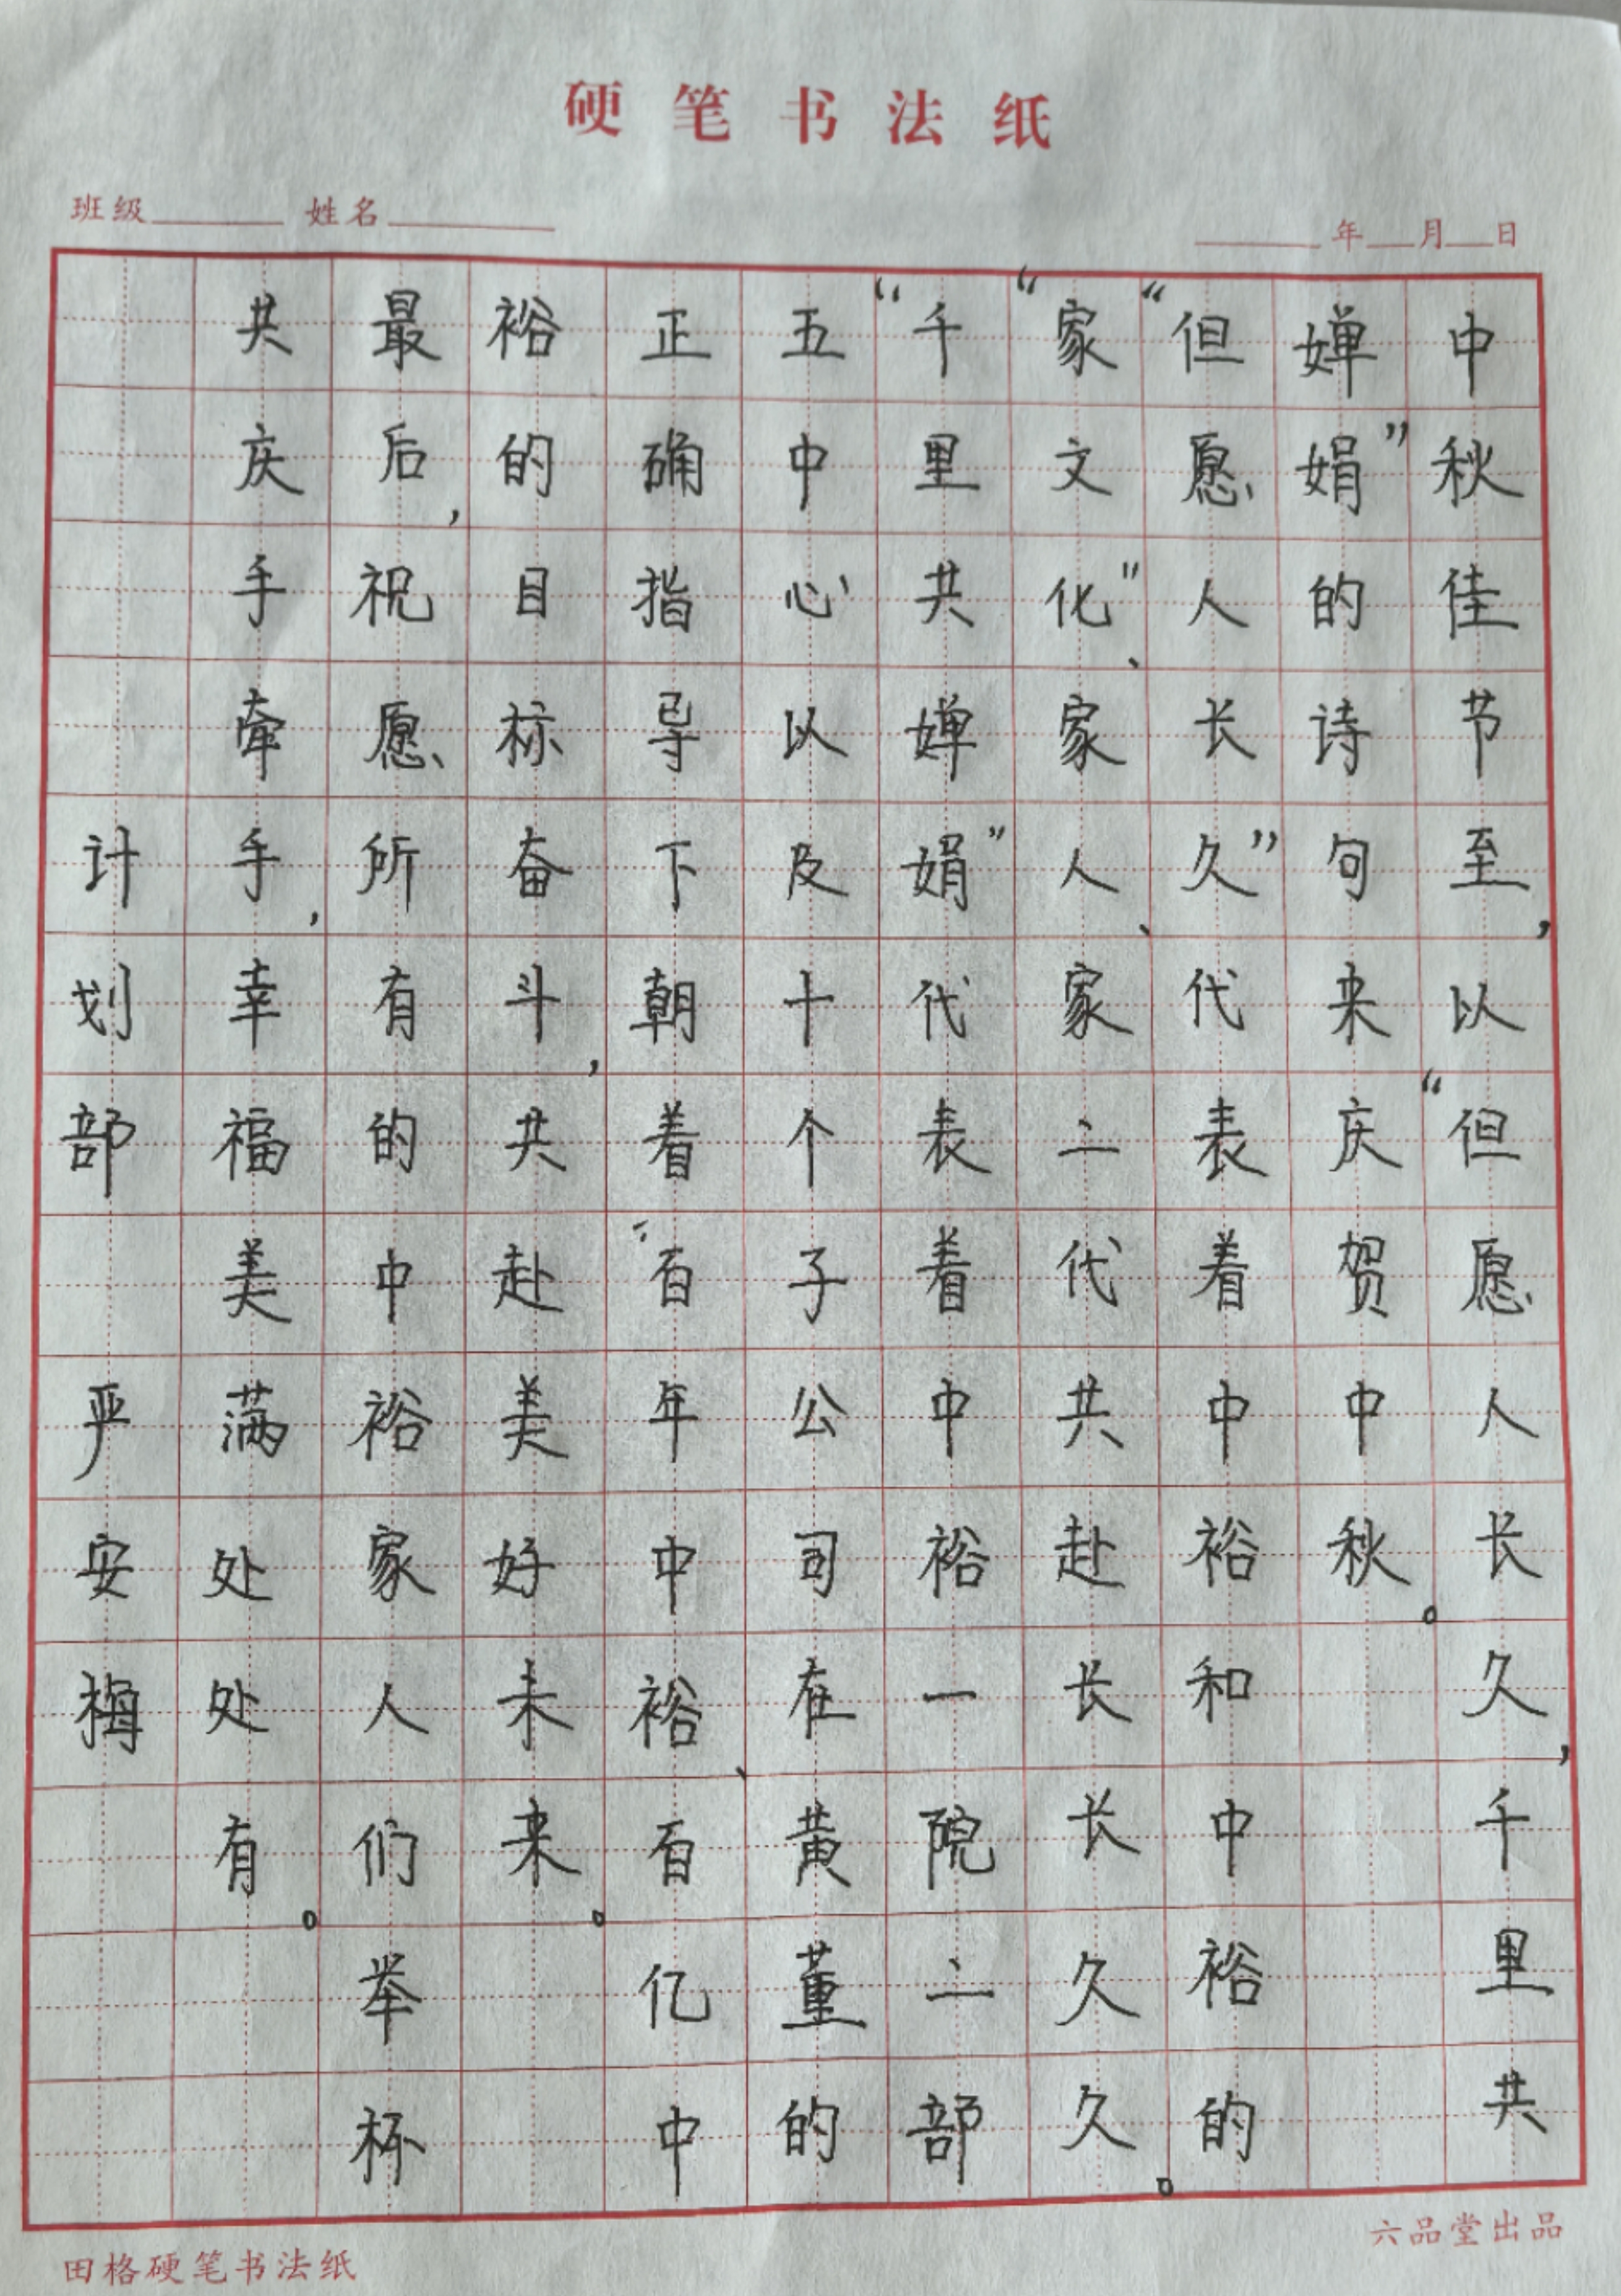 硬笔书法纸
班级 姓名 年 月 日
中秋佳节至，以“但愿人长久，千里共
婵娟”的诗句来庆贺中秋。
“但愿人长久”代表着中裕和中裕的
“家文化”、家人、家二代共赴长长久久。
“千里共婵娟”代表着中裕一院二部
五中心以及十个子公司在黄董的
正确指导下朝着“百年中裕、百亿中
裕的目标奋斗，共赴美好未来。
最后，祝愿所有的中裕家人们举杯
共庆手牵手，幸福美满处处有。
计划部 严安梅
田格硬笔书法纸
六品堂出品